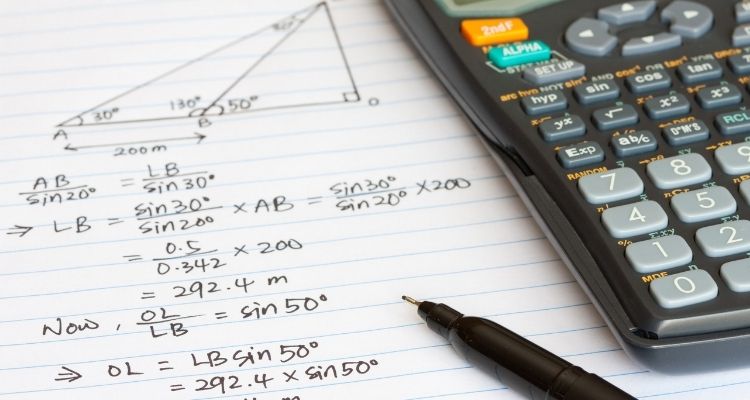 20°
30°
130°
50°
A
B
O
200m
AB/sin20° = LB/sin30°
⇒ LB = sin30°/sin20° × AB = sin30°/sin20° × 200
= 0.5/0.342 × 200
= 292.4 m
Now, OL/LB = sin 50°
⇒ OL = LB sin 50°
= 292.4 × sin50°
m
2ndF
ALPHA
STAT VAR
SET UP
hyp
sin
cos
tan
yx
√
x²
x³
Exp
ab/c
D°M'S
RCL
RANDOM
7
8
4
5
1
2
MDF
0